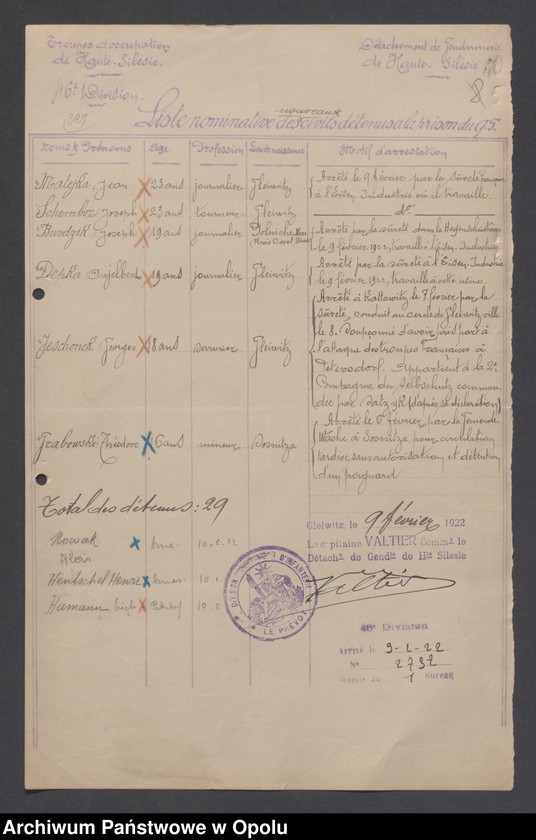 Troupes d'occupation
de Haute-Silésie.
46e Division.
Détachement de Gendarmerie
de Haute-Silésie
8
nouveaux
Liste nominative des civils détenus à la prison du Q.G.
Noms & Prénoms Age Profession Lieu de naissance Motif d'arrestation
Malejka Jean 23 ans journalier Gleiwitz
Arrêté le 9 février par la sûreté française
à l'Eisen-Industrie où il travaille.
Schember Joseph 23 ans tourneur Gleiwitz do
Burdzik Joseph 19 ans journalier
Arrêté par la sûreté dans la
le 9 février 1922, travaille à l'Eisen-Industrie
Depka Engelbert 19 ans journalier Gleiwitz
Arrêté par la sûreté à l'Eisen-Industrie
le 9 février 1922, travaille à cette usine.
Jeschonek Georges 18 ans serrurier Gleiwitz
Arrêté à Kattowitz le 7 février par la
sûreté, conduit au cercle de Gleiwitz ville
le 8. Soupçonné d'avoir pris part à
l'attaque des troupes françaises à
Petersdorf. Appartient à la 2e
Compagnie du Selbschutz comman
dée par (d'après sa déclaration)
Grabowski Isidore 16 ans mineur Sosnitza
Arrêté le 6 février par la Gemeinde
Wache à Sosnitza pour circulation
tardive sans autorisation et détention
d'un poignard.
Total des détenus : 29
Gleiwitz, le 9 février 1922
Le capitaine VALTIER Commt le
Détacht de Gendie de Hte Silésie
Nowak
Aloïs
Hentschel
Hamann Erich
DIVISION D'INFANTERIE
LE PREVOT
Valtier
46e Division
Arrivé le 9-2-22
No 2732
Remis au 1 Bureau
Archiwum Państwowe w Opolu